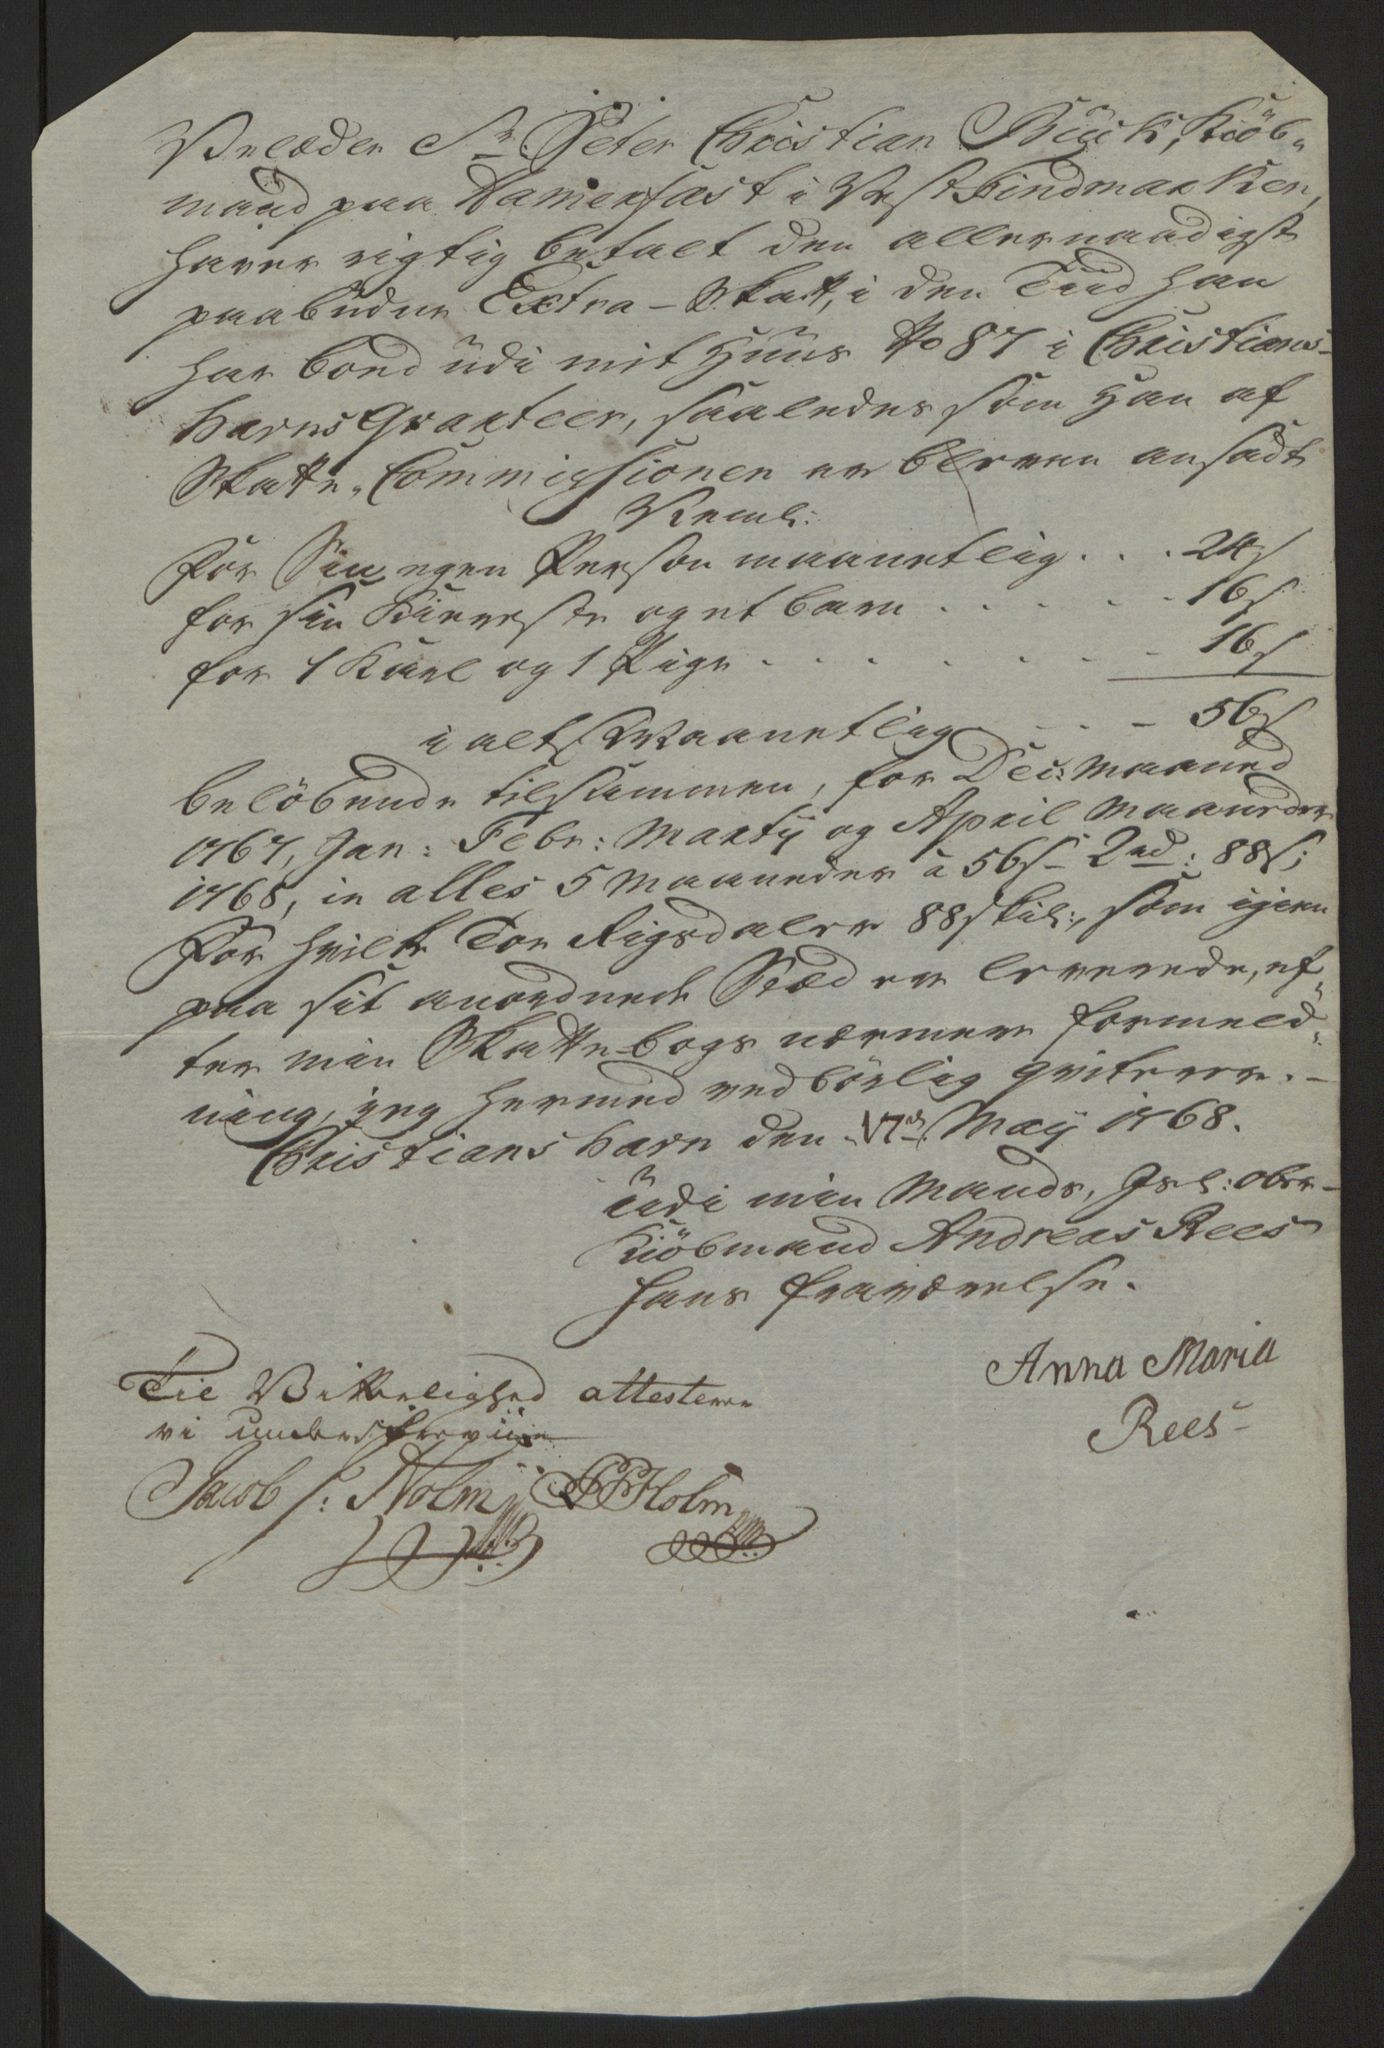 Velædle Sr. Peter Christian Büch, Kiöb-
mand paa Hamerfæst i VestFindmarken,
haver rigtig betalt den allernaadigst
paabudne Extra-Skatt, i den Tiid han
har boed udi mit Huus No 87 i Christians-
havns Qvarteer, saaledes som han af
Skatte-Commissionen er bleven ansadt
Neml:
For Sin egen Person maanetlig . . . 24 s
for sin Kiereste og et barn . . . . . . 16 s
for 1 Karl og 1 Pige . . . . . . . . 16 s
i alt Maanetlig . . . 56 s
beløbende tilsammen, for Dec: Maaned
1767, Jan: Febr: Martij og April Maaneder
1768, in alles 5 Maaneder a 56 s 2 rd: 88 s;
For hvilke Toe Rigsdaler 88 skil:, som igien
paa sit anordnede Stæd er leverede, ef-
ter min Skatte-bogs nærmere formeld-
ning, jeg hermed vedbörlig qviterer. -
Christianshavn den 17de May 1768.
udi min Mands, Isl: Ober-
Kiöbmand Andreas Rees
hans fraværelse.
Anna Maria
Rees
Til Vitterlighed attesterer
vi underskrevne
Jacob s: Holm PPHolm